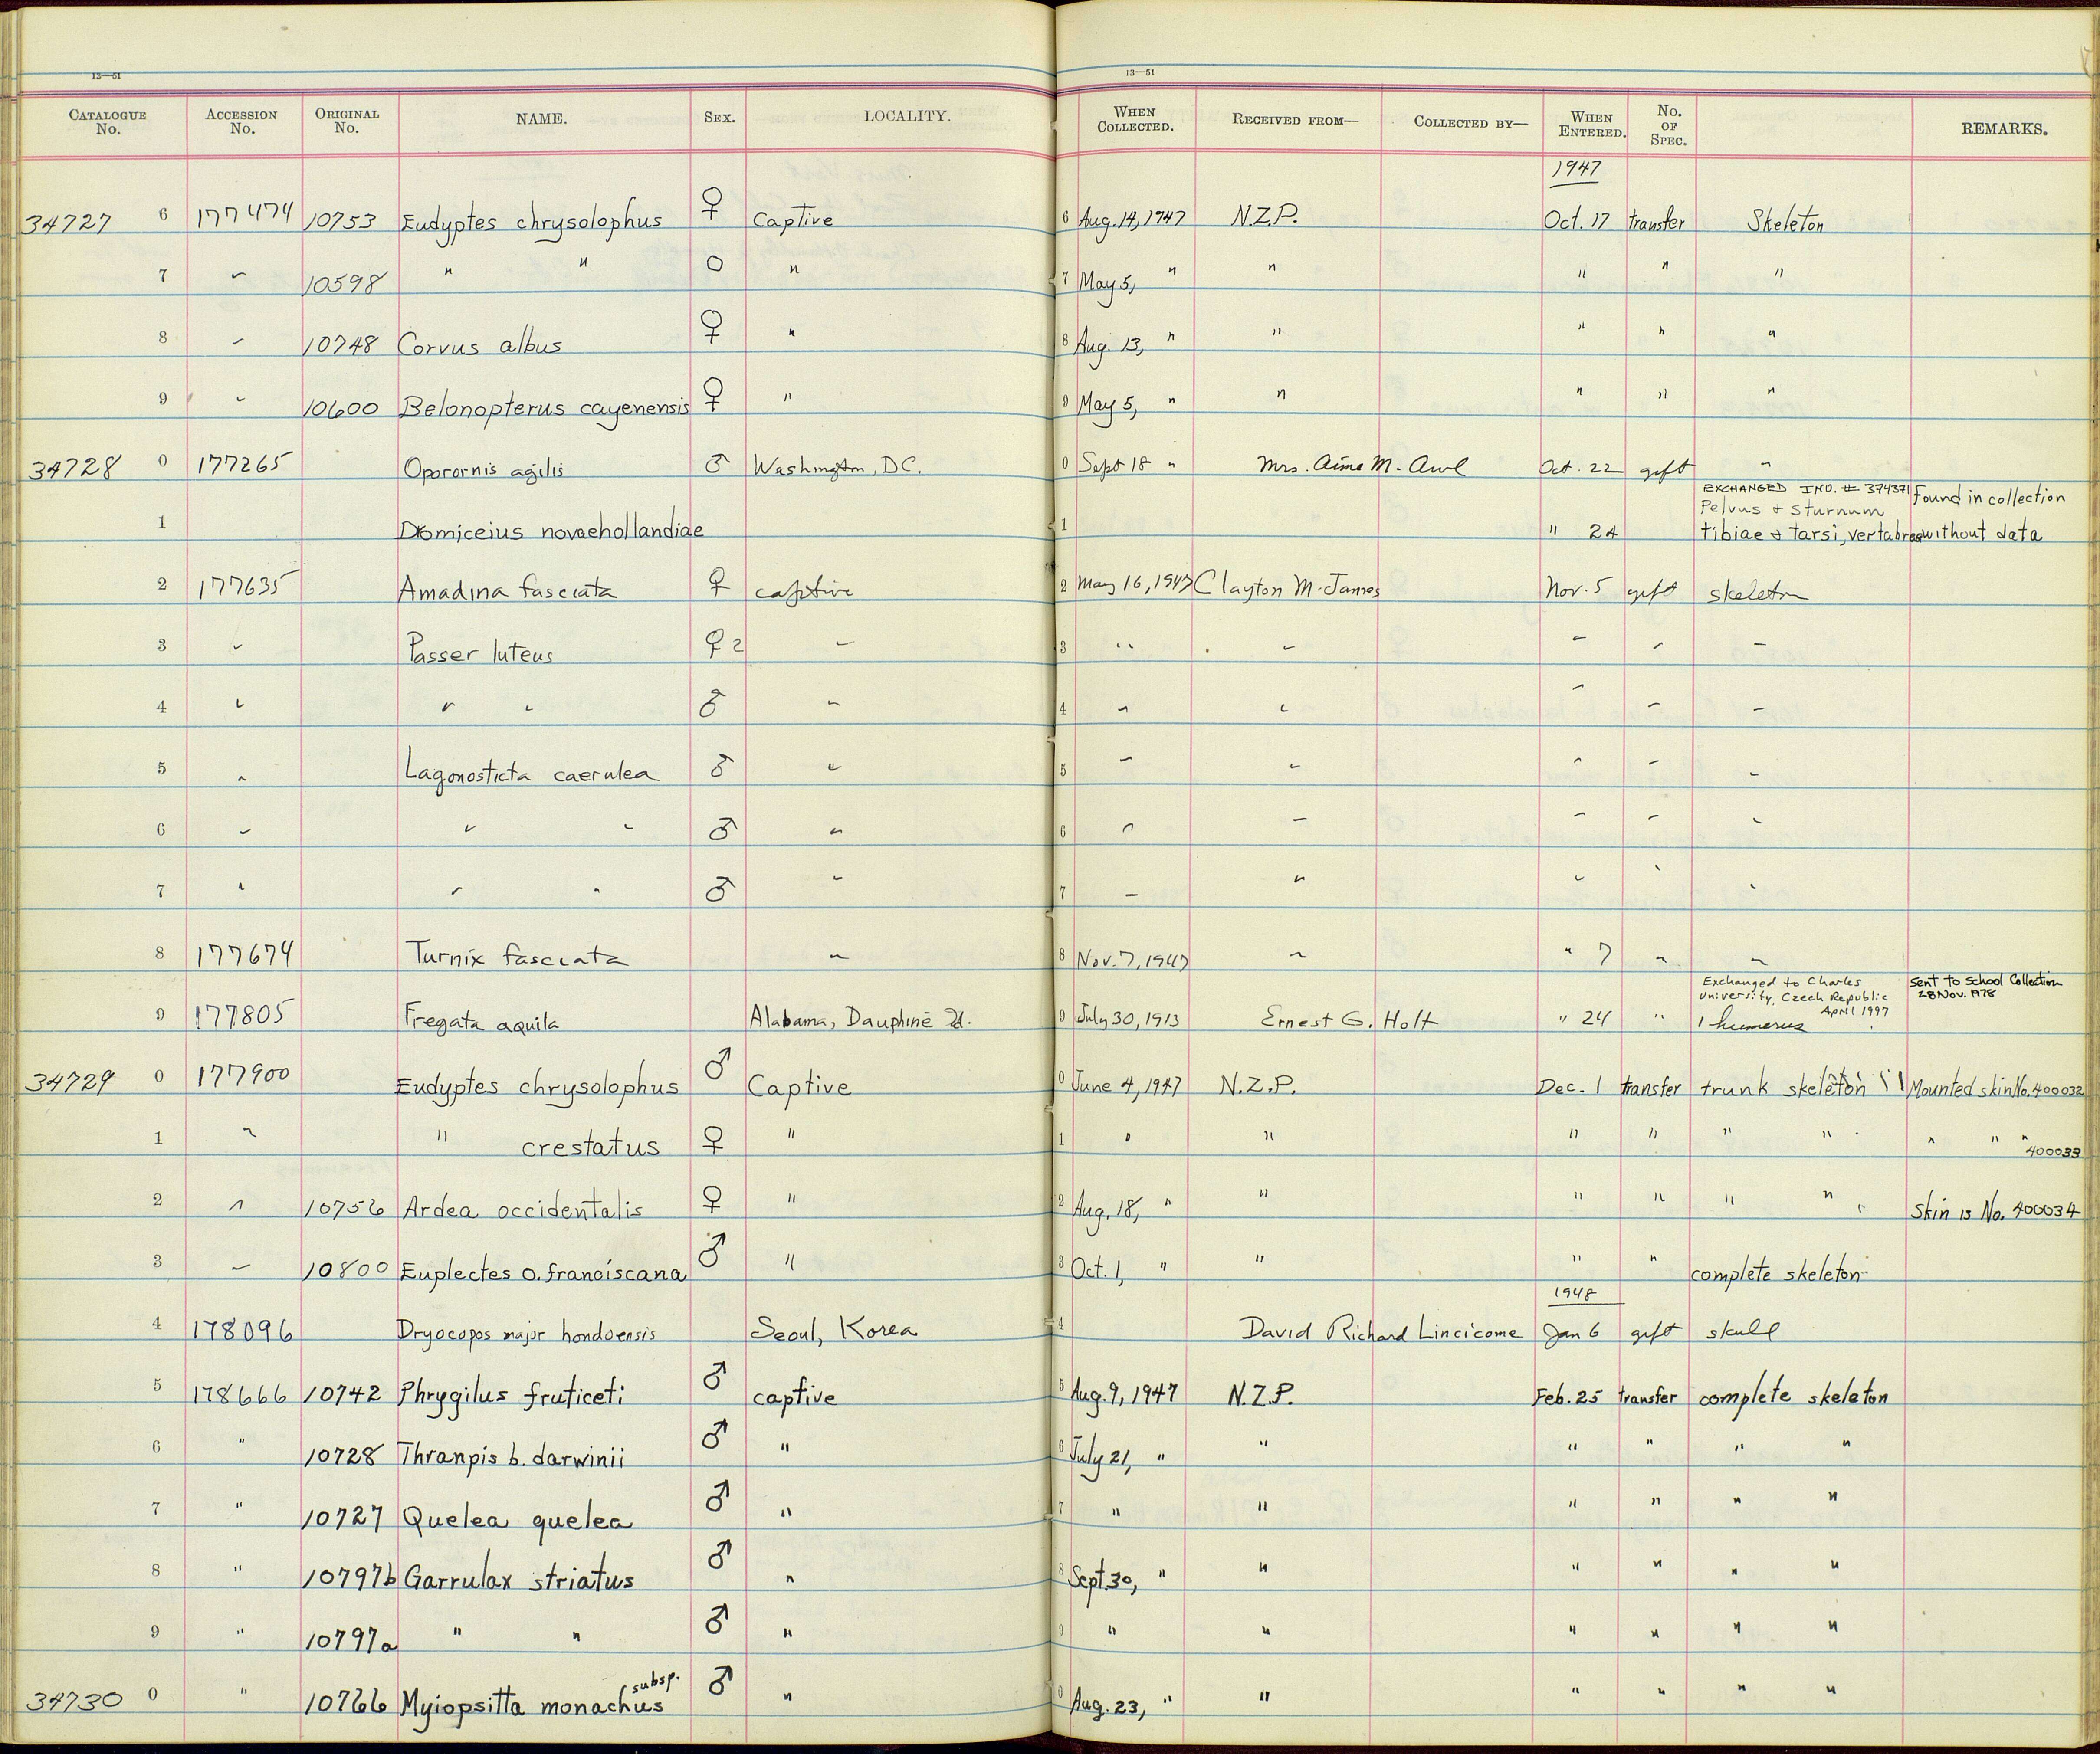 13—51 13—51
CATALOGUE No. ACCESSION No. ORIGINAL No. NAME. SEX. LOCALITY. WHEN COLLECTED. RECEIVED FROM— COLLECTED BY— WHEN ENTERED. No. OF SPEC. REMARKS.
1947
34727 6 177474 10753 Eudyptes chrysolophus ♀ Captive 6 Aug. 14, 1947 N.Z.P. Oct. 17 transfer Skeleton
7 " 10598 " " O " 7 May 5, " " " " "
8 " 10748 Corvus albus ♀ " 8 Aug. 13, " " " " "
9 " 10600 Belonopterus cayenensis ♀ " 9 May 5, " " " " "
34728 0 177265 Oporornis agilis ♂ Washington, D.C. 0 Sept 18 " Mrs. Aime M. Awl Oct. 22 gift "
EXCHANGED IND. # 374371 found in collection
Pelvus & Sturnum
1 Dromiceius novaehollandiae 1 " 24 tibiae & tarsi, vertabrae without data
2 177635 Amadina fasciata ♀ captive 2 May 16, 1947 Clayton M. James Nov. 5 gift skeleton
3 " Passer luteus ♀ 2 " 3 " " " " "
4 " " " ♂ " 4 " " " " "
5 " Lagonosticta caerulea ♂ " 5 " " " " "
6 " " " ♂ " 6 " " " " "
7 " " " ♂ " 7 " " " " "
8 177674 Turnix fasciata " 8 Nov. 7, 1947 " " 7 " "
Exchanged to Charles Sent to School Collection
University, Czech Republic 28 Nov. 1978
April 1997
9 177805 Fregata aquila Alabama, Dauphine Id. 9 July 30, 1913 Ernest G. Holt " 24 " 1 humerus
34729 0 177900 Eudyptes chrysolophus ♂ Captive 0 June 4, 1947 N.Z.P. Dec. 1 transfer trunk skeleton Mounted skin No. 400032
1 " " crestatus ♀ " 1 " " " " " " " " " 400033
2 " 10756 Ardea occidentalis ♀ " 2 Aug. 18, " " " " " " Skin is No. 400034
3 " 10800 Euplectes o. franciscana ♂ " 3 Oct. 1, " " " " complete skeleton
1948
4 178096 Dryocopos major hondoensis Seoul, Korea 4 David Richard Lincicome Jan 6 gift skull
5 178666 10742 Phrygilus fruticeti ♂ captive 5 Aug. 9, 1947 N.Z.P. Feb. 25 transfer complete skeleton
6 " 10728 Thranpis b. darwinii ♂ " 6 July 21, " " " " " "
7 " 10727 Quelea quelea ♂ " 7 " " " " " "
8 " 10797b Garrulax striatus ♂ " 8 Sept. 30, " " " " " "
9 " 10797a " " ♂ " 9 " " " " " "
subsp.
34730 0 " 10766 Myiopsitta monachus ♂ " 0 Aug. 23, " " " " " "